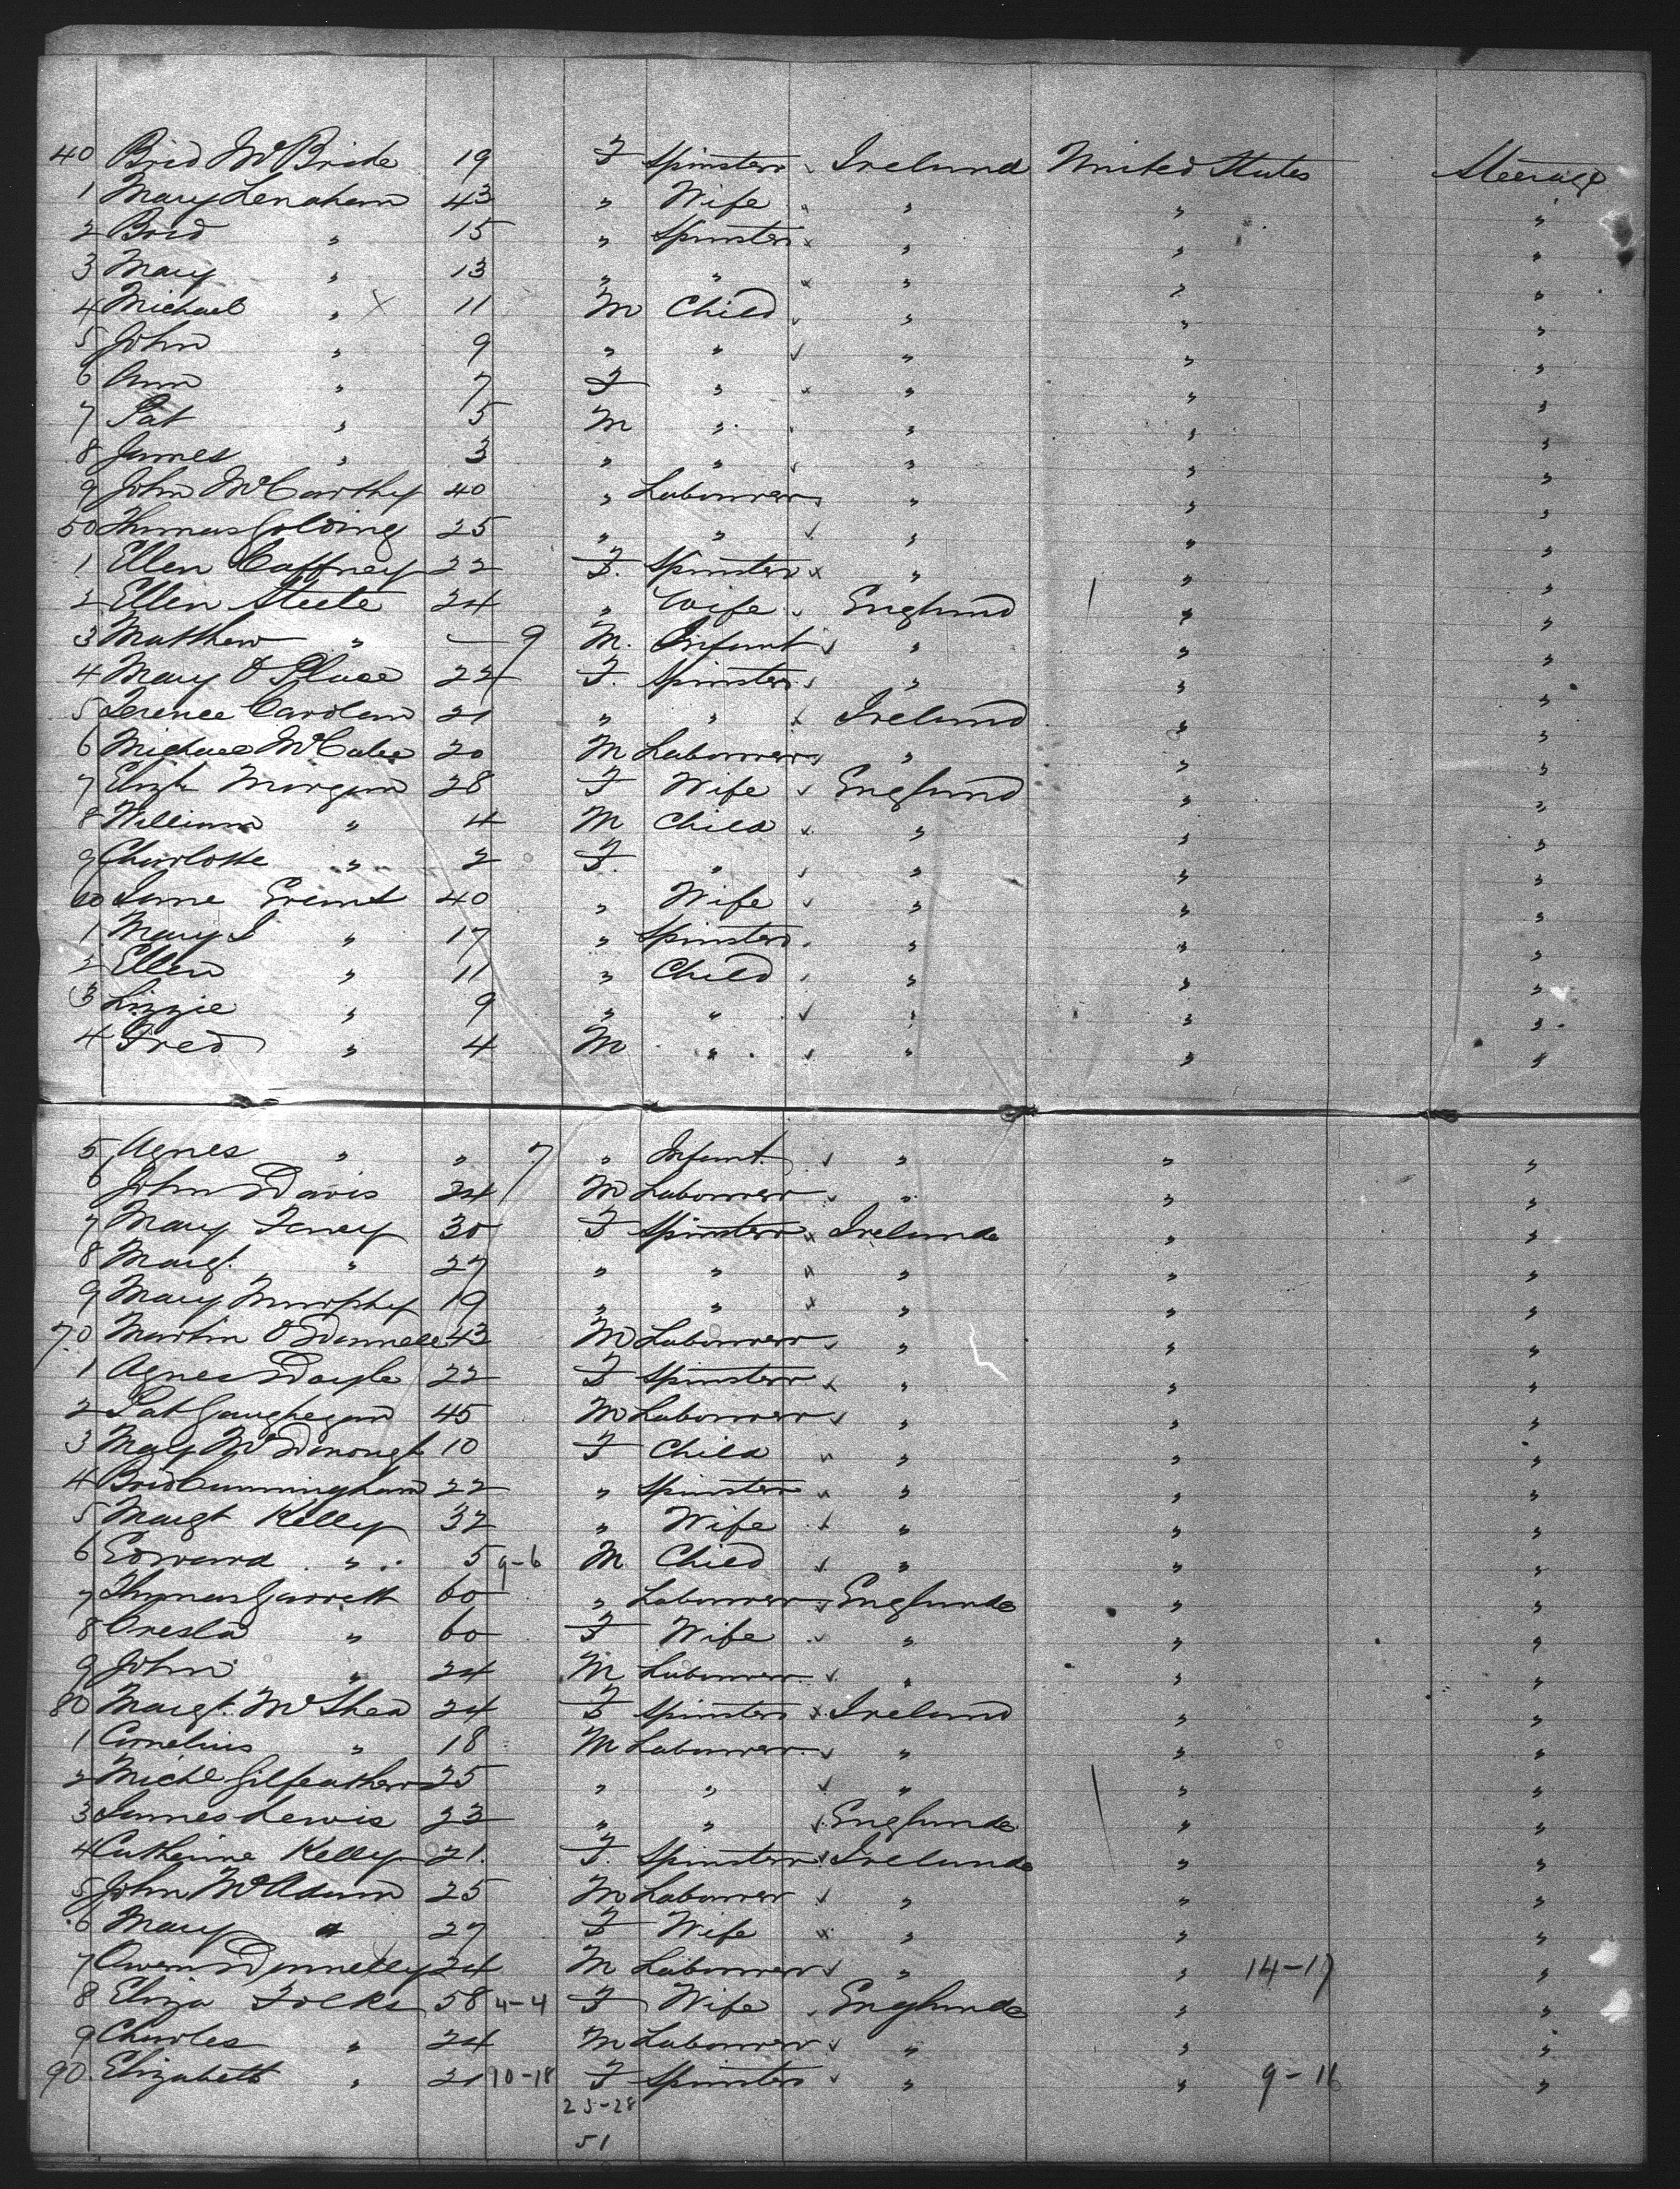 40 Brid McBride 19 F Spinster Ireland United States Steerage
1 Mary Lenahan 43 " Wife " " "
2 Brid " 15 " Spinster " " "
3 Mary " 13 " " " " "
4 Michael " X 11 M Child " " "
5 John " 9 " " " " "
6 Ann " 7 F " " " "
7 Pat " 5 M " " " "
8 James " 3 " " " " "
9 John McCarthy 40 " Labourer " " "
50 Thomas Golding 25 " " " " "
1 Ellen Caffney 22 F. Spinster " " "
2 Ellen Steele 24 " Wife England " "
3 Matthew " — 9 M. Infant " " "
4 Mary O Place 22 F. Spinster " " "
5 Terence Carolan 21 " " Ireland " "
6 Michael McCabe 20 M Labourer " " "
7 Elizth Morgan 28 F Wife England " "
8 William " 4 M Child " " "
9 Charlotte " 2 F. " " " "
60 Jane Grant 40 " Wife " " "
1 Mary J " 17 " Spinster " " "
2 Ellen " 11 " Child " " "
3 Lizzie " 9 " " " " "
4 Fred " 4 M " " " "
5 Agnes " " 7 " Infant " " "
6 John Davis 24 M Labourer " " "
7 Mary 30 F Spinster Ireland " "
8 Margt. " 27 " " " " "
9 Mary Murphy 19 " " " " "
70 Martin O'Donnell 43 M Labourer " " "
1 Agnes Doyle 22 F Spinster " " "
2 Pat Gaughegan 45 M Labourer " " "
3 Mary McDonough 10 F Child " " "
4 Brid Cunningham 22 " Spinster " " "
5 Margt Kelly 32 " Wife " " "
6 Edward " 5 9-6 M Child " " "
7 Thomas Garrett 60 " Labourer England " "
8 " 60 F Wife " " "
9 John " 24 M Labourer " " "
80 Margt. McShea 24 F Spinster Ireland " "
1 Cornelius " 18 M Labourer " " "
2 Michl Gilfeather 25 " " " " "
3 James Lewis 23 " " England " "
4 Catherine Kelly 21. F. Spinster Ireland " "
5 John McAdam 25 M Labourer " " "
6 Mary " 27 F Wife " " "
7 Owen Donnelly 24 M Labourer " " 14-17 "
8 Eliza Folks 58 4-4 F Wife England " "
9 Charles " 24 M Labourer " " "
90. Elizabeth " 21 10-18 F Spinster " " 9-16 "
25-28
51